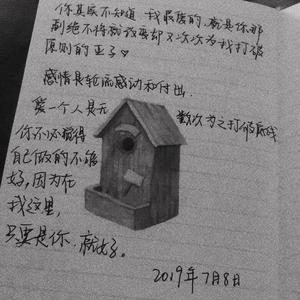 你其实不知道 我最爱的,就是你那
副绝不将就 却又次次为我打破
原则的至了
感情是轮流感动和付出,
爱一个人是无 数次为之打破底线
你不必觉得
自己做的不够
好,因为在
我这里,
只要是你,就好。
2019年7月8日